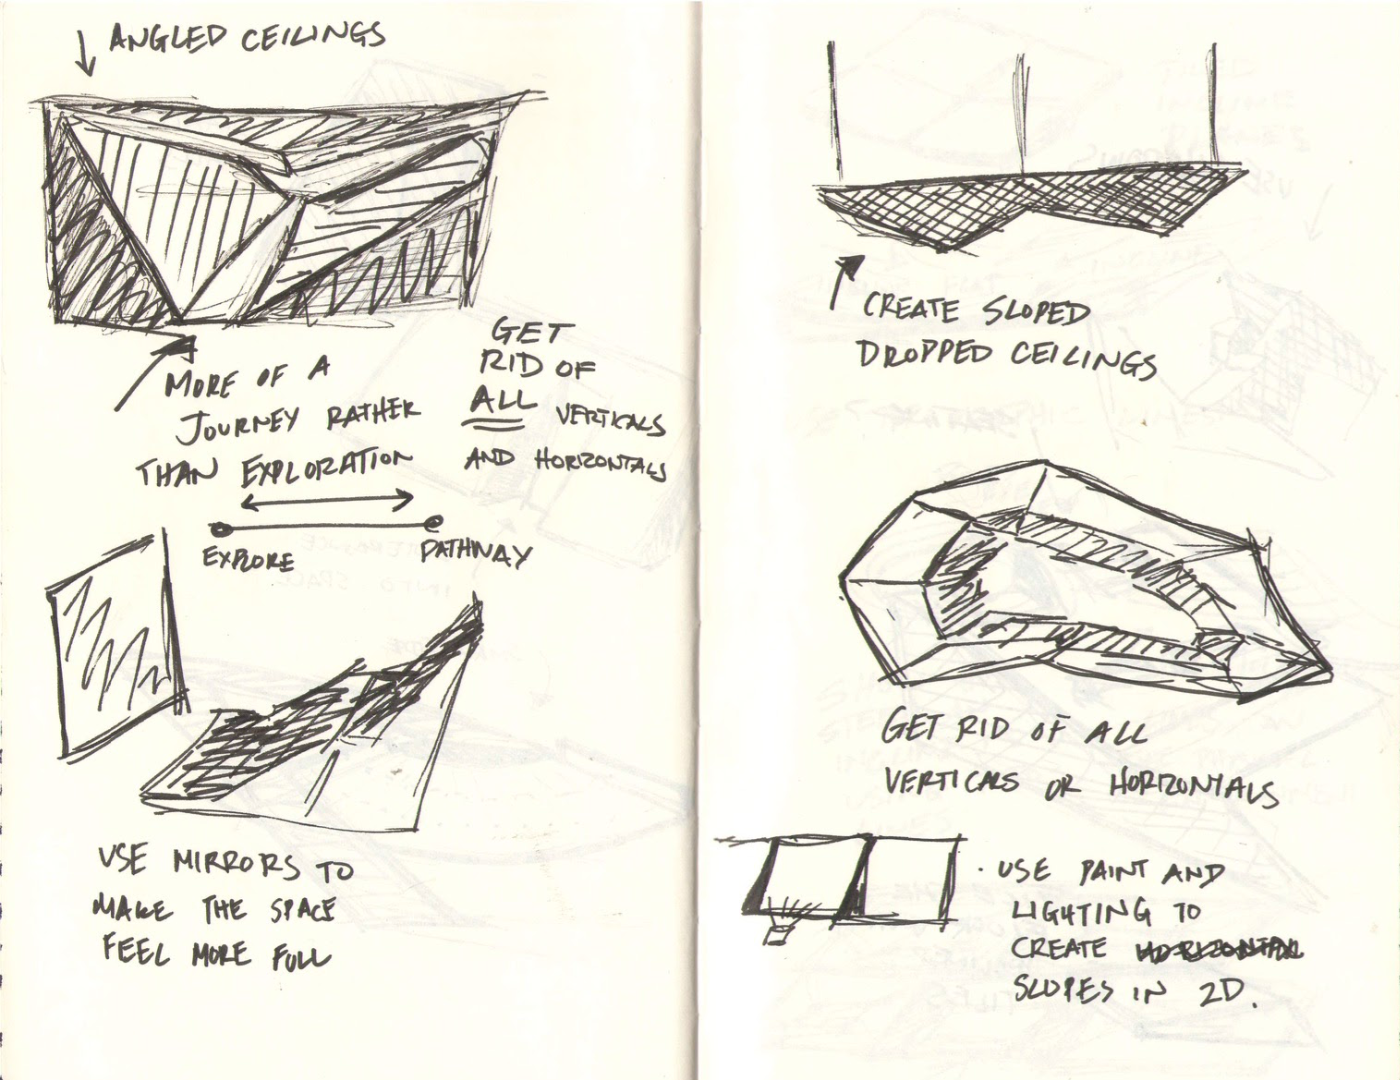 ANGLED CEILINGS
MORE OF A
JOURNEY RATHER
THAN EXPLORATION
GET
RID OF
ALL VERTICALS
AND HORIZONTALS
EXPLORE
PATHWAY
USE MIRRORS TO
MAKE THE SPACE
FEEL MORE FULL
CREATE SLOPED
DROPPED CEILINGS
GET RID OF ALL
VERTICALS OR HORIZONTALS
· USE PAINT AND
LIGHTING TO
CREATE HORIZONTAL
SLOPES IN 2D.